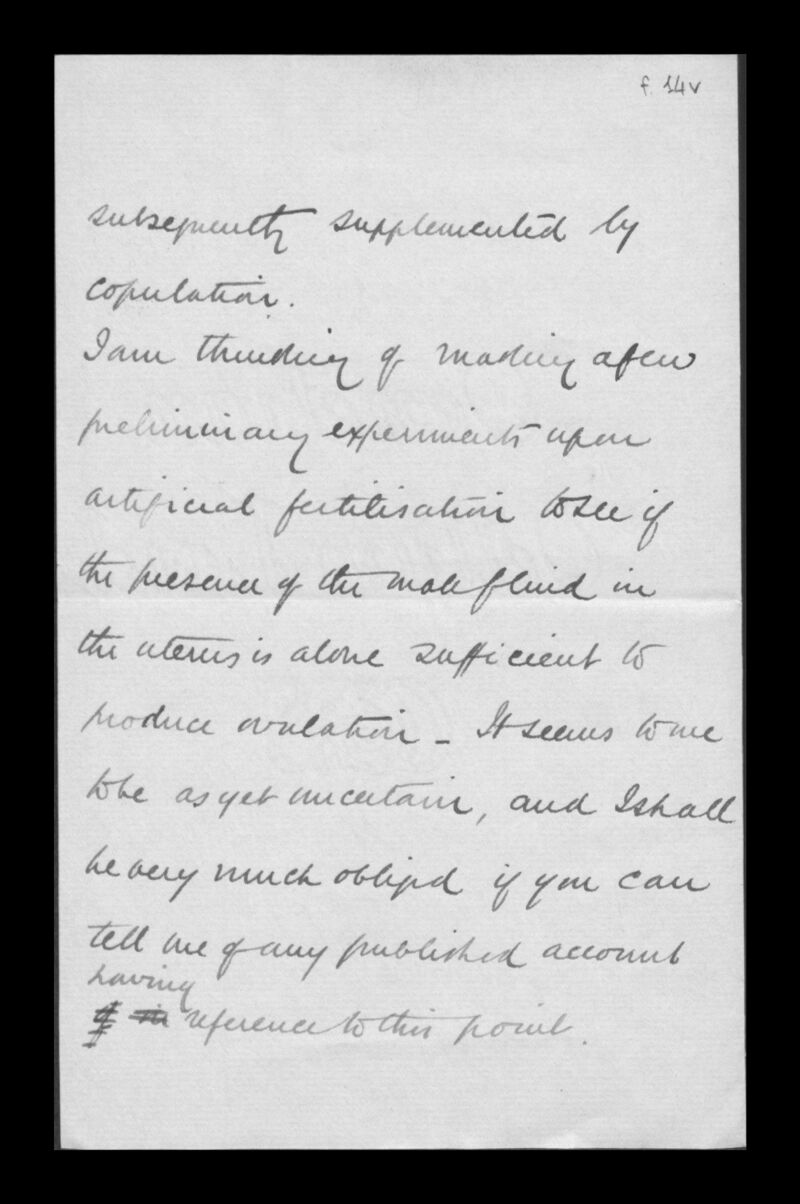 f. 14v
subsequently supplemented by
copulation.
I am thinking of making a few
preliminary experiments upon
artificial fertilisation to see if
the presence of the male fluid in
the uterus is alone sufficient to
produce ovulation – It seems to me
to be as yet uncertain, and I shall
be very much obliged if you can
tell me of any published account
having
of in reference to this point.